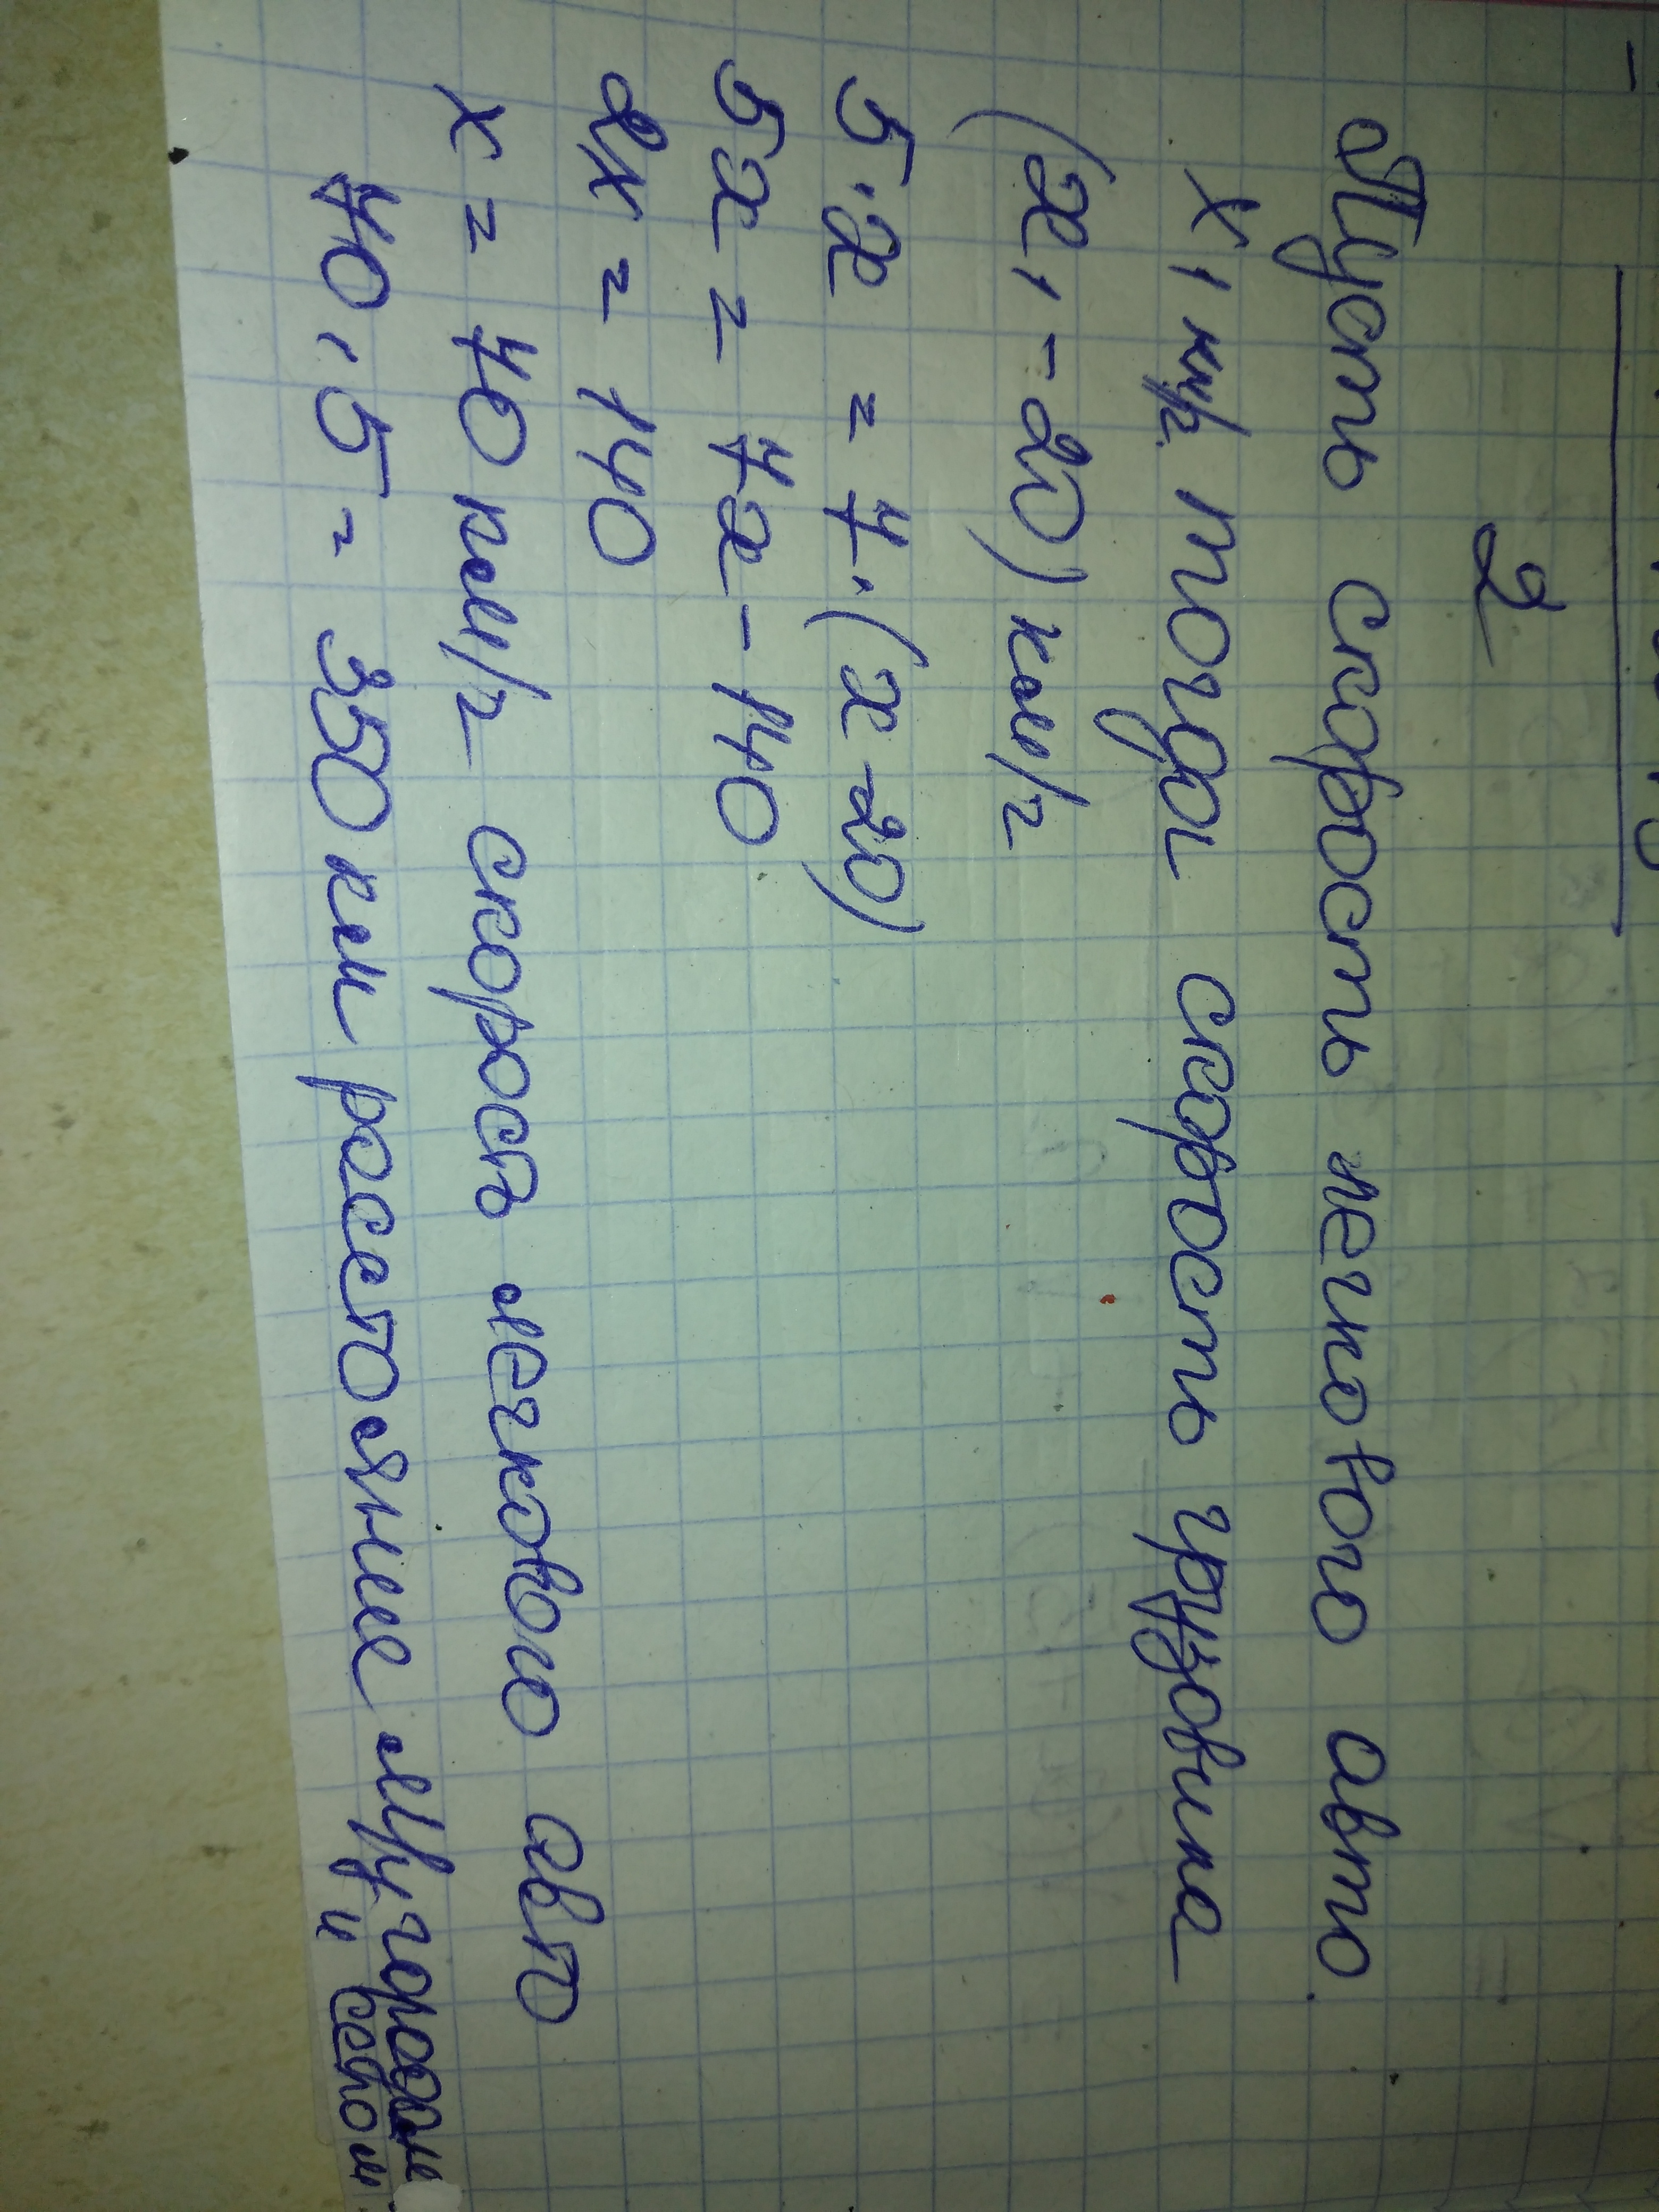 2
Пусть скорость легкового авто
х, км/г. тогда скорость грузовика
(х, -20) км/г
5·х = 7·(х-20)
5х = 7х - 140
2х = 140
х = 70 км/г скорость легкового авто
70,5 = 350 км расстояние м/у городом
и селом